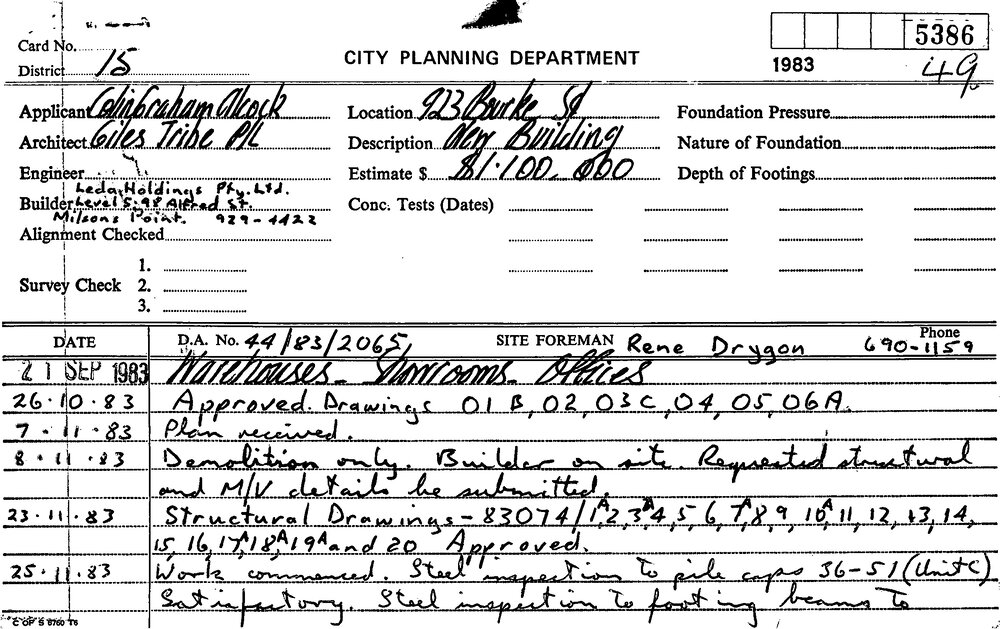 Card No.
5386
District 15
CITY PLANNING DEPARTMENT
1983
49
Applicant Colin Graham Alcock
Location 923 Bourke St
Foundation Pressure
Architect Giles Tribe P/L
Description New Building
Nature of Foundation
Engineer
Estimate $ $1.100.000
Depth of Footings
Leda Holdings Pty. Ltd.
Builder Level 5, 98 Alfred St.
Milsons Point. 929-4422
Conc. Tests (Dates)
Alignment Checked
1.
Survey Check 2.
3.
DATE
D.A. No. 44/83/2065,
SITE FOREMAN Rene Drygon
Phone
690-1159
21 SEP 1983 Warehouses - Showrooms - Offices
26.10.83 Approved. Drawings 01B, 02, 03C, 04, 05, 06A.
7.11.83 Plan received.
8.11.83 Demolition only. Builder on site. Requested structural
and M/V details be submitted.
23.11.83 Structural Drawings - 83074/1A, 2, 3A, 4, 5, 6, 7A, 8, 9, 10A, 11, 12, 13, 14,
15, 16, 17A, 18A, 19A and 20 Approved.
25.11.83 Work commenced. Steel inspection to pile caps 36-51 (Unit C)
Satisfactory. Steel inspection to footing beams to
C OF S 5760 T6